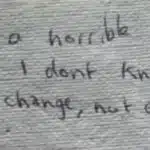 a horrible
I dont kn
change, not
.